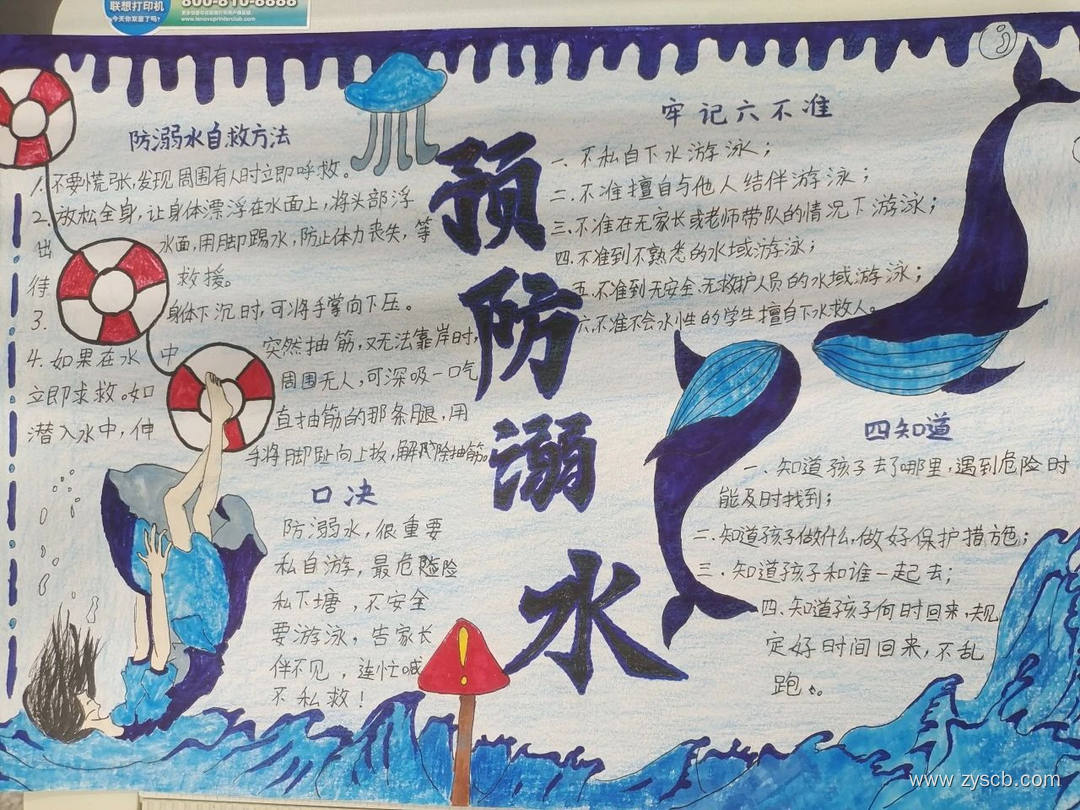 联想打印机
今天你双面了吗?
800-810-8888
www.lenovoprinterclub.com
预
防
溺
水
防溺水自救方法
1.不要慌张,发现周围有人时立即呼救。
2.放松全身,让身体漂浮在水面上,将头部浮
出 水面,用脚踢水,防止体力丧失,等
待 救援。
3. 身体下沉时,可将手掌向下压。
4.如果在水中 突然抽筋,又无法靠岸时,
立即求救。如 周围无人,可深吸一口气
潜入水中,伸 直抽筋的那条腿,用
手将脚趾向上扳,解除抽筋。
口决
防溺水,很重要
私自游,最危险
私下塘,不安全
要游泳,告家长
伴不见,连忙喊
不私救!
牢记六不准
一、不私自下水游泳;
二.不准擅自与他人结伴游泳;
三.不准在无家长或老师带队的情况下游泳;
四.不准到不熟悉的水域游泳;
五.不准到无安全.无救护人员的水域游泳;
六.不准不会水性的学生擅自下水救人。
四知道
一、知道孩子去了哪里,遇到危险时
能及时找到;
二.知道孩子做什么,做好保护措施;
三.知道孩子和谁一起去;
四.知道孩子何时回来,规
定好时间回来,不乱
跑。
www.zyscb.com